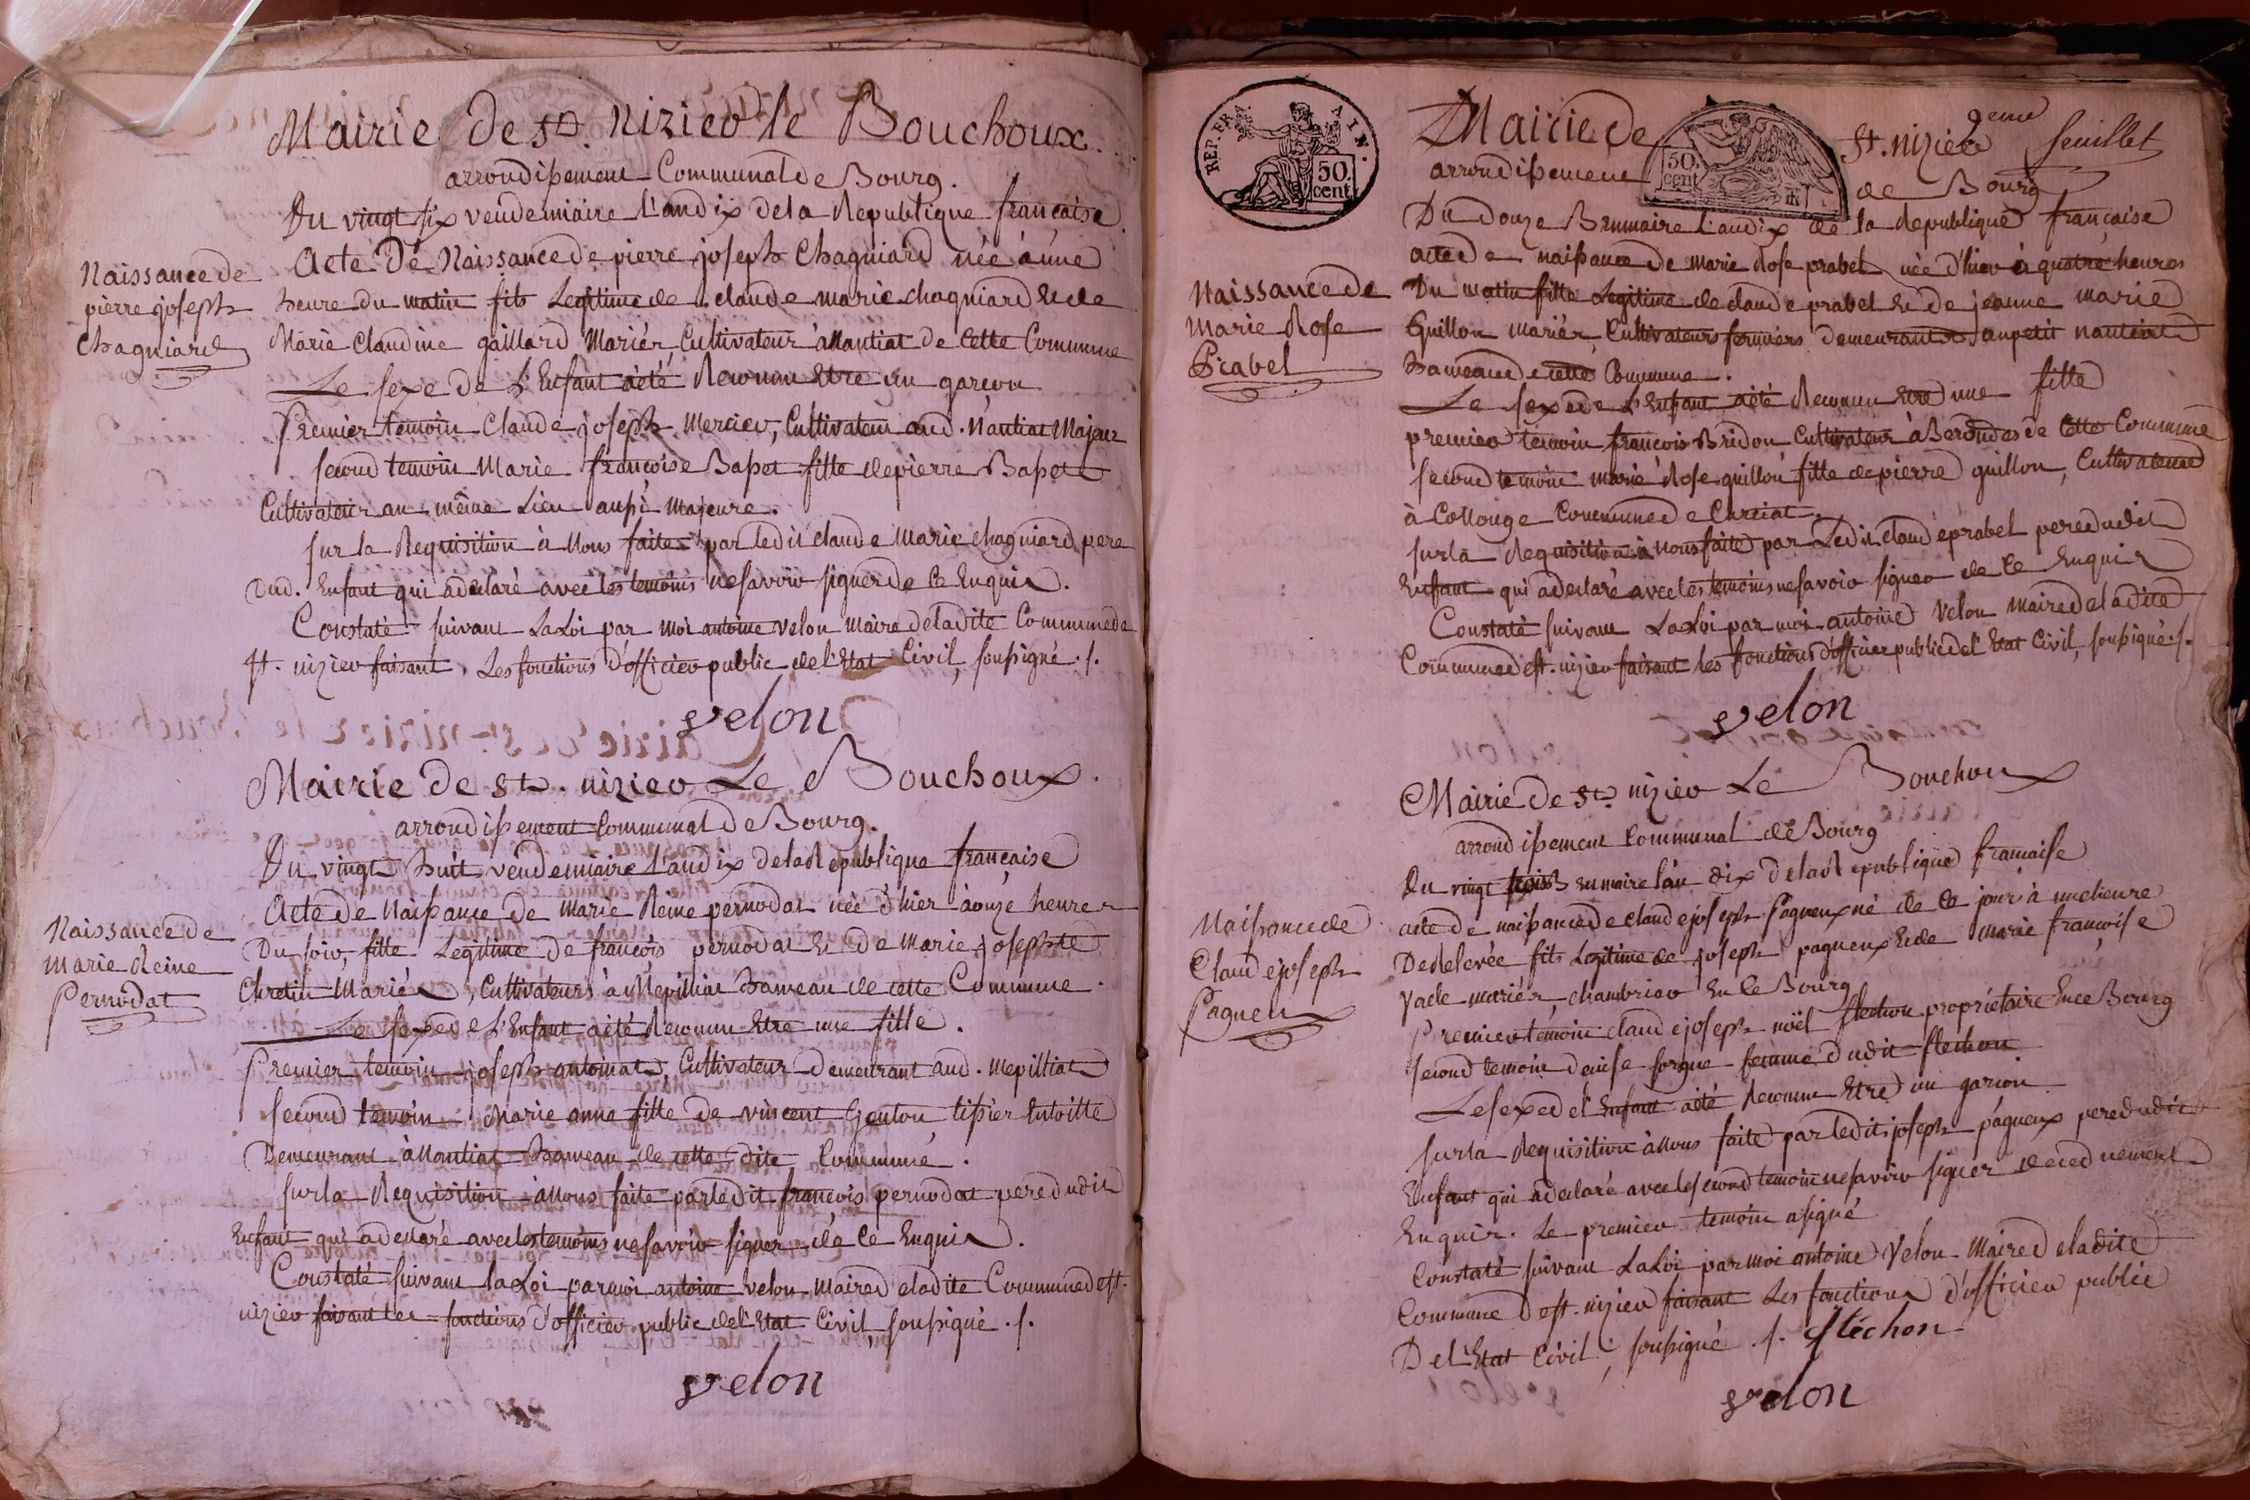 Mairie de st. Nizier le Bouchoux.
arrondissement Communal de Bourg.
Du vingt six vendemiaire L'an dix de la Republique française
Naissance de
pierre joseph
Chagniard
Acte De Naissance de pierre joseph Chagniard née à une
heure du matin fils Legitime de claude marie chagniard et de
Marie Claudine gaillard Mariér, Cultivateur à Nantiat de Cette Commune
Le sexe de L'Enfant à été Reconnu Etre un garçon
Premier temoin Claude joseph Mercier, Cultivateur aud. Nantiat Majeur
second temoin Marie françoise Basset fille de pierre Basset
Cultivateur au même Lieu aussi Majeure.
sur la Requisition à Nous faite par ledit claude Marie chagniard pere
dud. Enfant qui à declaré avec les temoins ne savoir signer de ce Enquis.
Constaté suivant La Loi par moi antoine velon maire de ladite Commune de
st. nizier faisant Les fonctions d'officier public de l'Etat Civil, soussigné ./.
velon
Mairie de st. nizier Le Bouchoux.
arrondissement Communal de Bourg.
Du vingt huit vendemiaire L'an dix de la Republique française
Naissance de
Marie Reine
Pernodat
Acte de Naissance de Marie Reine pernodat née d'hier à onze heures
Du soir, fille Legitime de françois pernodat et de Marie josephte
Chretin Mariés, Cultivateurs à Mepilliat hameau de cette Commune.
Le sexe de L'Enfant à été Reconnu Etre une fille.
Premier temoin joseph antoinat, Cultivateur demeurant aud. Mepilliat
second temoin Marie anne fille de vincent Genton tissier En toille
Demeurant à Nantiat hameau de cette dite Commune.
sur la Requisition à Nous faite par ledit françois pernodat pere dudit
Enfant qui à declaré avec les temoins ne savoir signer de ce Enquis.
Constaté suivant la Loi par moi antoine velon Maire de ladite Commune de st.
nizier faisant les fonctions d'officier public de l'Etat Civil, soussigné ./.
velon
REP. FRA. AIN.
50. cent
50. cent
2eme feuillet
Mairie de St. nizier
arrondissement de Bourg
Du Douze Brumaire L'an dix de la Republique française
Naissance de
Marie Rose
Prabel
acte de naissance de marie Rose prabel née d'hier à quatre heures
Du matin fille Legitime de claude prabel et de jeanne marie
Guillon mariér Cultivateurs fermiers demeurant au petit nantiat
hameau de cette Commune.
Le sexe de L'Enfant à été Reconnu Etre une fille
premier temoin francois Bridon Cultivateur à Berondes de Cette Commune
second temoin marie Rose guillon fille de pierre guillon, Cultivateur
à Collonge Commune de Curciat.
sur la Requisition à nous faite par Ledit claude prabel pere dudit
Enfant qui à declaré avec les temoins ne savoir signer de ce Enquis
Constaté suivant La Loi par moi antoine Velon maire de ladite
Commune de st. nizier faisant les fonctions d'officier public de l'Etat Civil, soussigné ./.
velon
Mairie de st. nizier Le Bouchoux
arrondissement Communal de Bourg
Du vingt brumaire l'an dix de la Republique francaise
Naissance de
Claude joseph
Pagneux
acte de naissance de claude joseph Pagneux né de ce jour à une heure
De relevée fils Legitime de joseph pagneux et de marie françoise
Vade mariér, chambrier En ce Bourg
Premier temoin claude joseph noël flechon propriétaire En ce Bourg
second temoin denise forgue femme dudit flechon
Le sexe de l'Enfant à été Reconnu Etre un garçon
sur la Requisition à Nous faite par ledit joseph pagneux pere dudit
Enfant qui à declaré avec le second temoin ne savoir signer de ce duement
Enquis. Le premier temoin a signé
Constaté suivant La Loi par moi antoine Velon Maire de ladite
Commune de st. nizier faisant Les fonctions d'officier public
De l'Etat Civil, soussigné ./. fléchon
velon